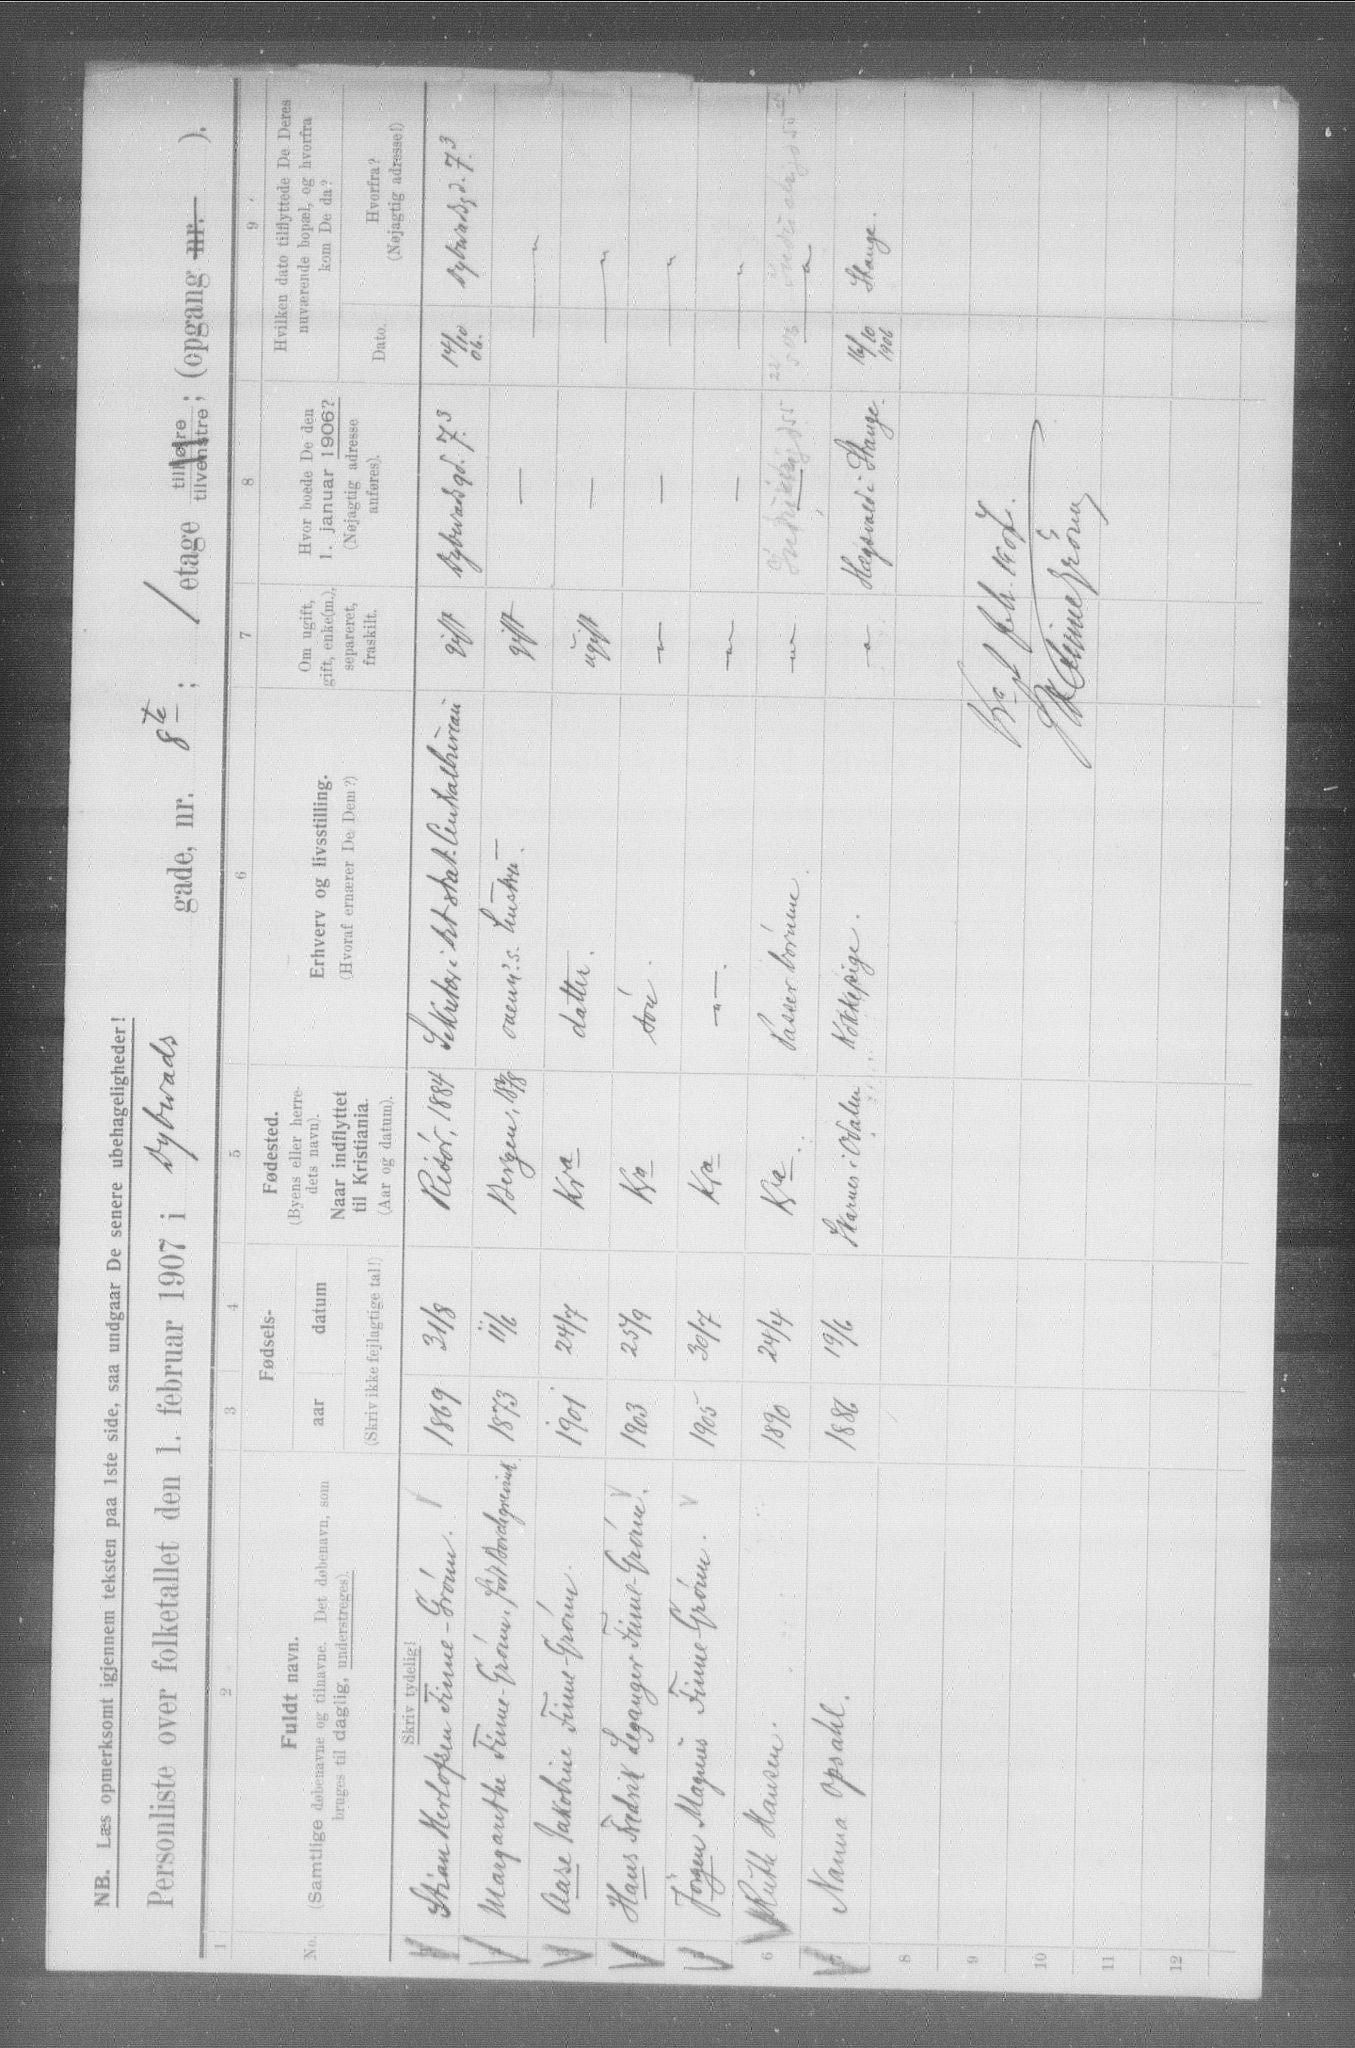 NB. Læs opmerksomt igjennem teksten paa 1ste side, saa undgaar De senere ubehageligheder!
Personliste over folketallet den 1. februar 1907 i Dybwads gade, nr. 8te; / etage tilhøire tilvenstre; (opgang nr. ).
1 2 3 4 5 6 7 8 9
No. Fuldt navn.
(Samtlige døbenavne og tilnavne. Det døbenavn, som bruges til daglig, understreges).
Skriv tydelig!
Fødsels-
aar datum
(Skriv ikke fejlagtige tal!)
Fødested.
(Byens eller herre-
dets navn).
Naar indflyttet
til Kristiania.
(Aar og datum).
Erhverv og livsstilling.
(Hvoraf ernærer De Dem?)
Om ugift,
gift, enke(m.),
separeret,
fraskilt.
Hvor boede De den
1. januar 1906?
(Nøjagtig adresse
anføres).
Hvilken dato tilflyttede De Deres
nuværende bopæl, og hvorfra
kom De da?
Dato. Hvorfra?
(Nøjagtig adresse!)
Stian Herlofsen Finne-Grønn. 1869 31/8 Risør, 1884 Sekretær i det stat. Centralbureau gift Dybwadsgd. 7.3 14/10 06. Dybwadsgd. 7.3
Margarethe Finne-Grønn, født 1873 11/6 Bergen, ovenn.s. hustru. gift — — "
Aase Jakobine Finne-Grønn. 1901 24/7 Kra datter. ugift — — "
Hans Fredrik Leganger Finne-Grønn. 1903 25/9 Kra søn. — " — — — "
Jørgen Magnus Finne-Grønn. 1905 30/7 Kra — " —. — " — — — "
6 Ruth Hansen. 1890 24/4 Kra. Passer børnene. — " —
Nanna Opsahl. 1886 19/6 Skarnes i Odalen Kokkepige. — " — Stange. 16/10 1906 Stange.
8
9
10
11
12
Kra 1 feb. 1907.
Finne Grønn